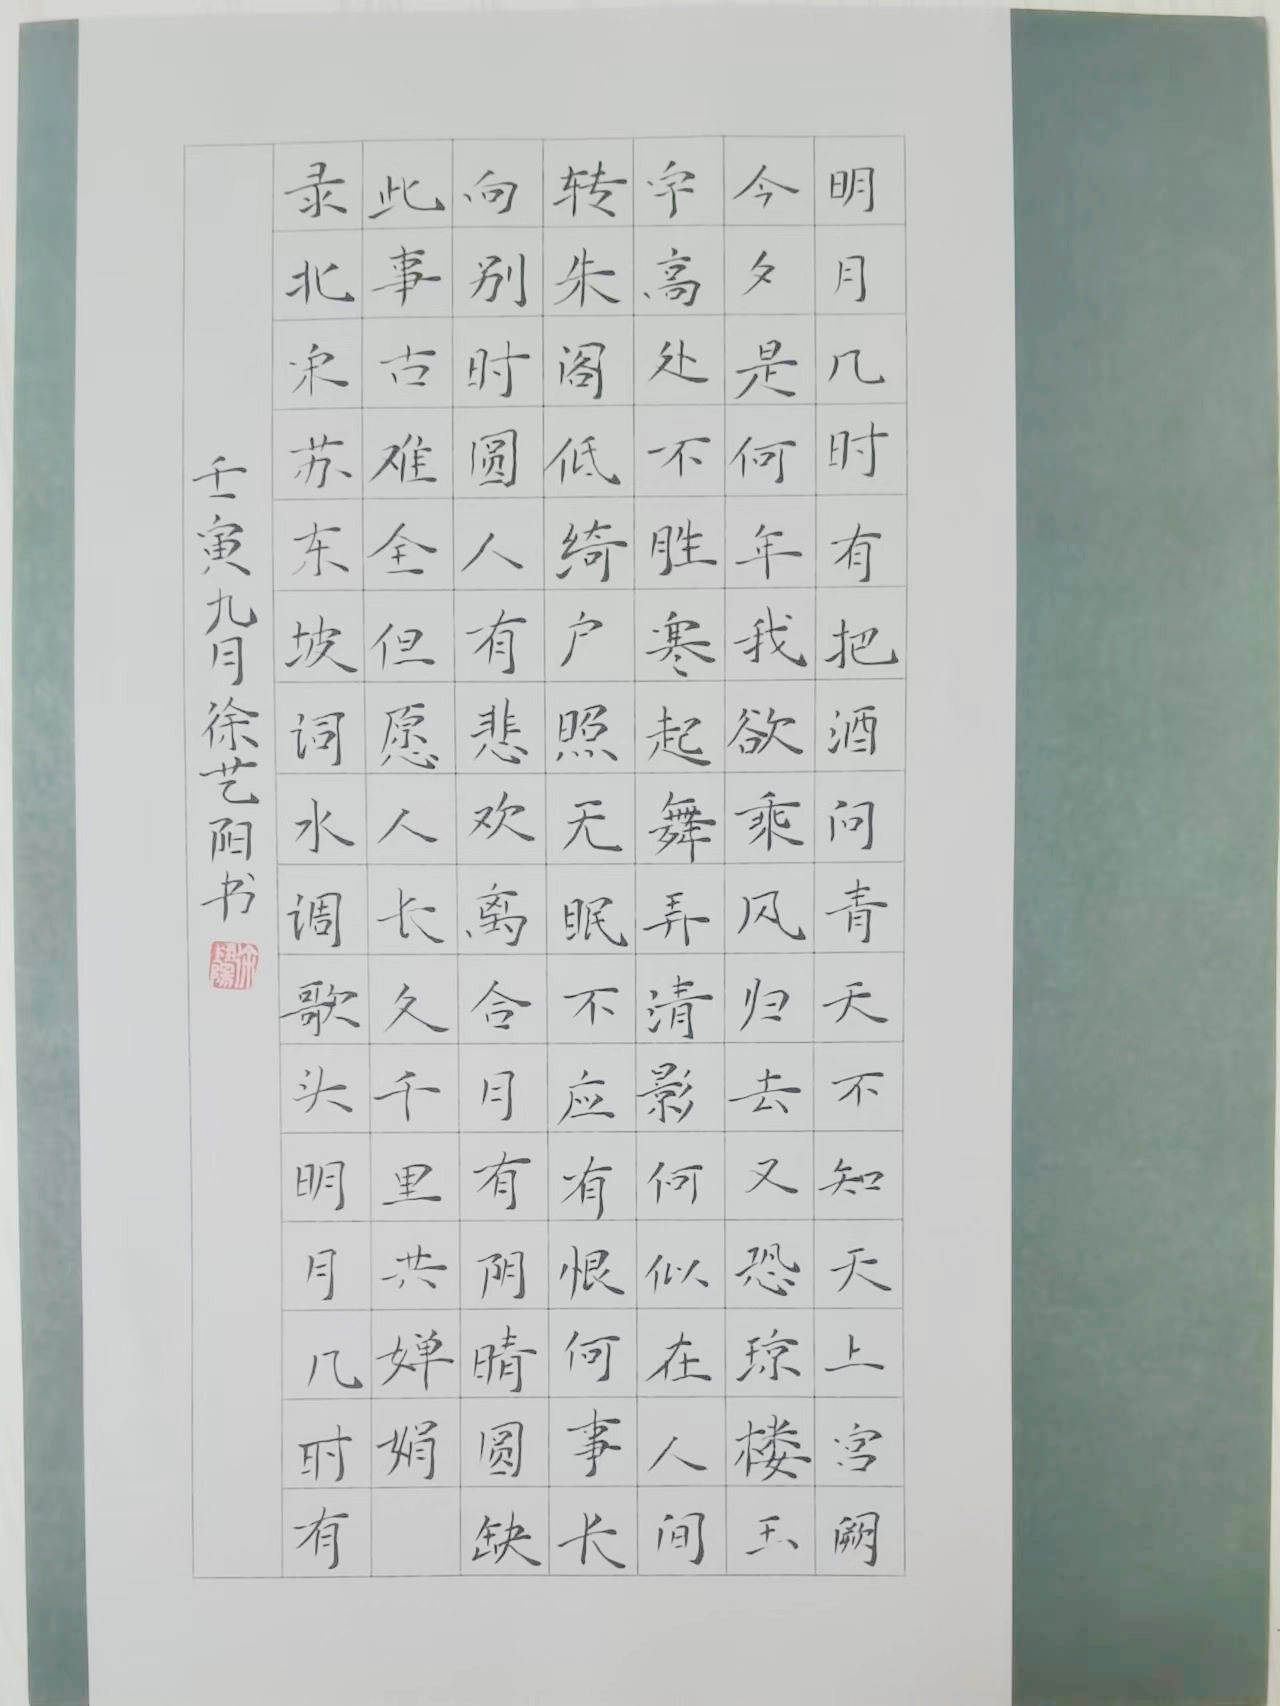 明月几时有把酒问青天不知天上宫阙
今夕是何年我欲乘风归去又恐琼楼玉
宇高处不胜寒起舞弄清影何似在人间
转朱阁低绮户照无眠不应有恨何事长
向别时圆人有悲欢离合月有阴晴圆缺
此事古难全但愿人长久千里共婵娟
录北宋苏东坡词水调歌头明月几时有
壬寅九月徐艺阳书